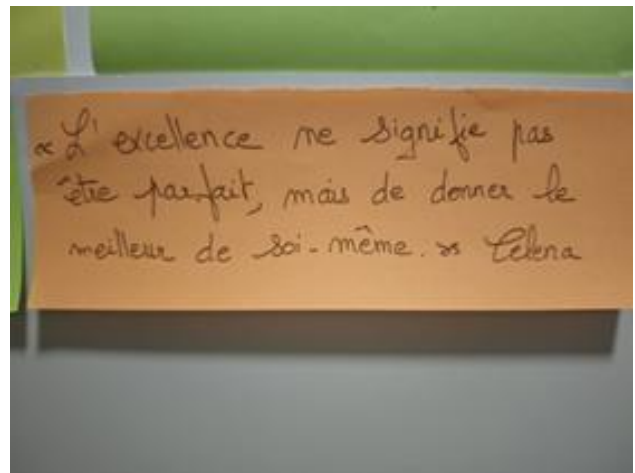 « L'excellence ne signifie pas
être parfait, mais de donner le
meilleur de soi-même. » Celena